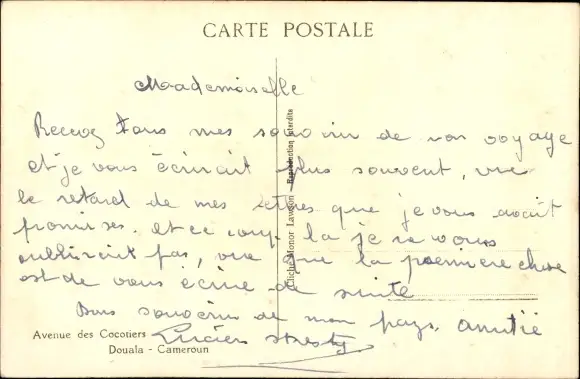 CARTE POSTALE
Mademoiselle
Recevez tous mes souvenir de mon voyage
et je vous écrirait plus souvent, vue
le retard de mes lettres que je vous avait
promises. et ce coup la je ne vous
oublirait pas, vue que la première chose
est de vous écrire de suite
Bons souvenir de mon pays. amitié
Lucien
Avenue des Cocotiers
Douala - Cameroun
Cliché Monor Lawson Reproduction interdite